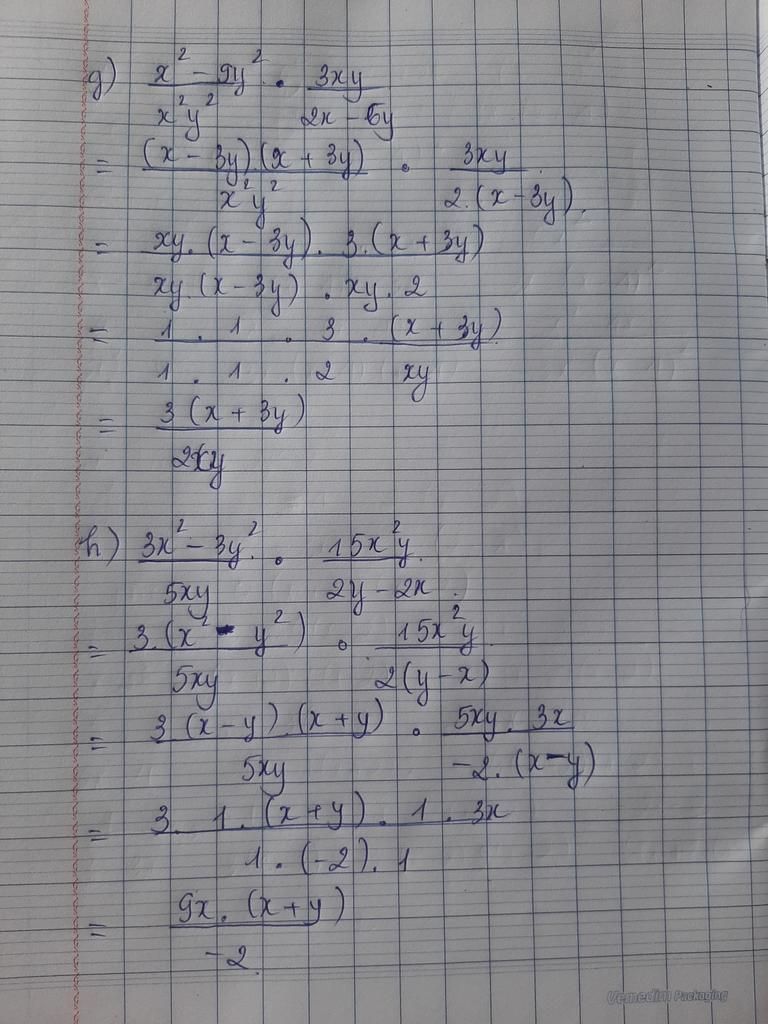 g) x² - 9y² . 3xy
x²y² 2x - 6y
= (x - 3y).(x + 3y) . 3xy
x²y² 2.(x - 3y)
= xy.(x - 3y). 3.(x + 3y)
xy.(x - 3y) . xy. 2
= 1 . 1 . 3 . (x + 3y)
1 . 1 . 2 xy
= 3 (x + 3y)
2xy
h) 3x² - 3y² . 15x²y
5xy 2y - 2x
= 3.(x² - y²) . 15x²y
5xy 2(y - x)
= 3 (x - y).(x + y) . 5xy. 3x
5xy -2.(x - y)
= 3. 1. (x + y). 1 . 3x
1 . (-2). 1
= 9x. (x + y)
-2
Vemedim Packaging